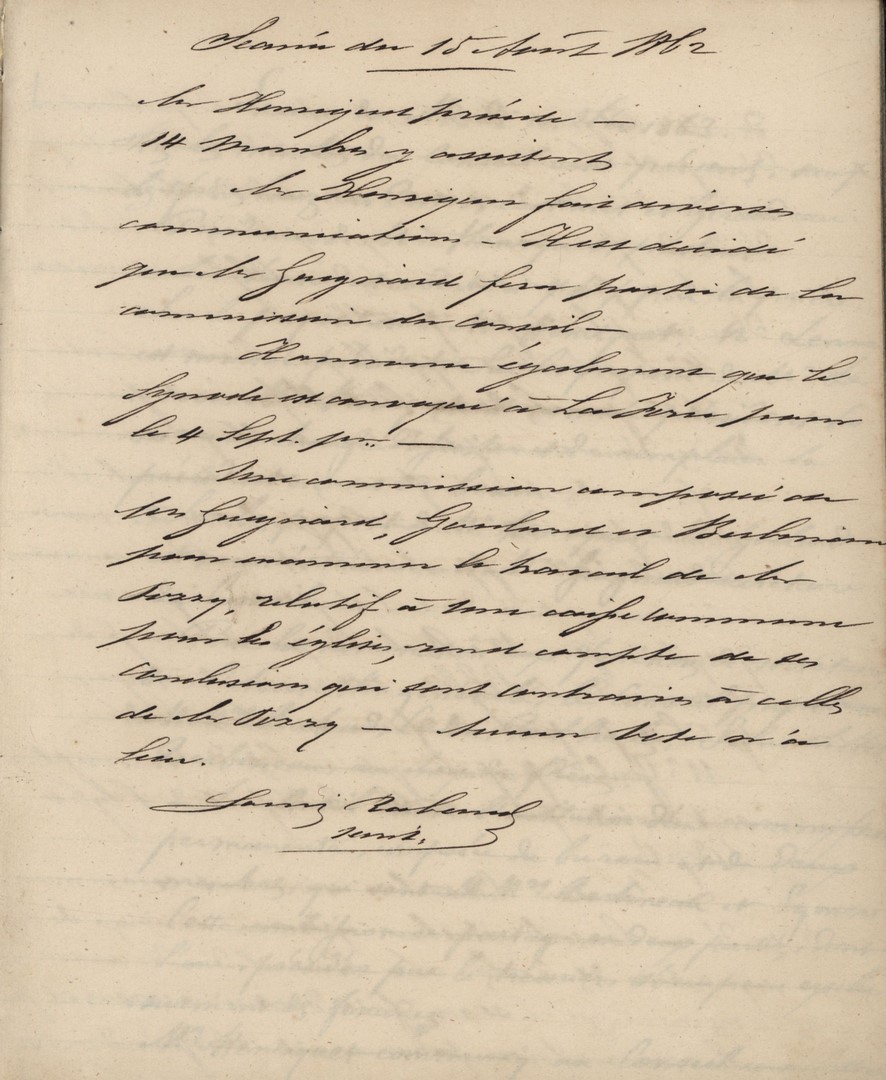 Séance du 15 Août 1862
Mr Henriquet préside —
14 Membres y assistent
Mr Henriquet fait diverses
communications — Il est décidé
que Mr Gueyriard fera partie de la
commission du conseil —
Il annonce également que le
Synode est convoqué à La Force pour
le 4 Sept. pr. —
Une commission composée de
Mrs Gueyriard, Goulard et Barbereau
pour examiner le travail de Mr
Pozzy, relatif à une caisse commune
pour les églises, rend compte de ses
conclusions qui sont contraires à celles
de Mr Pozzy — Aucun vote n'a
lieu.
Louis Rabaud
secrét.